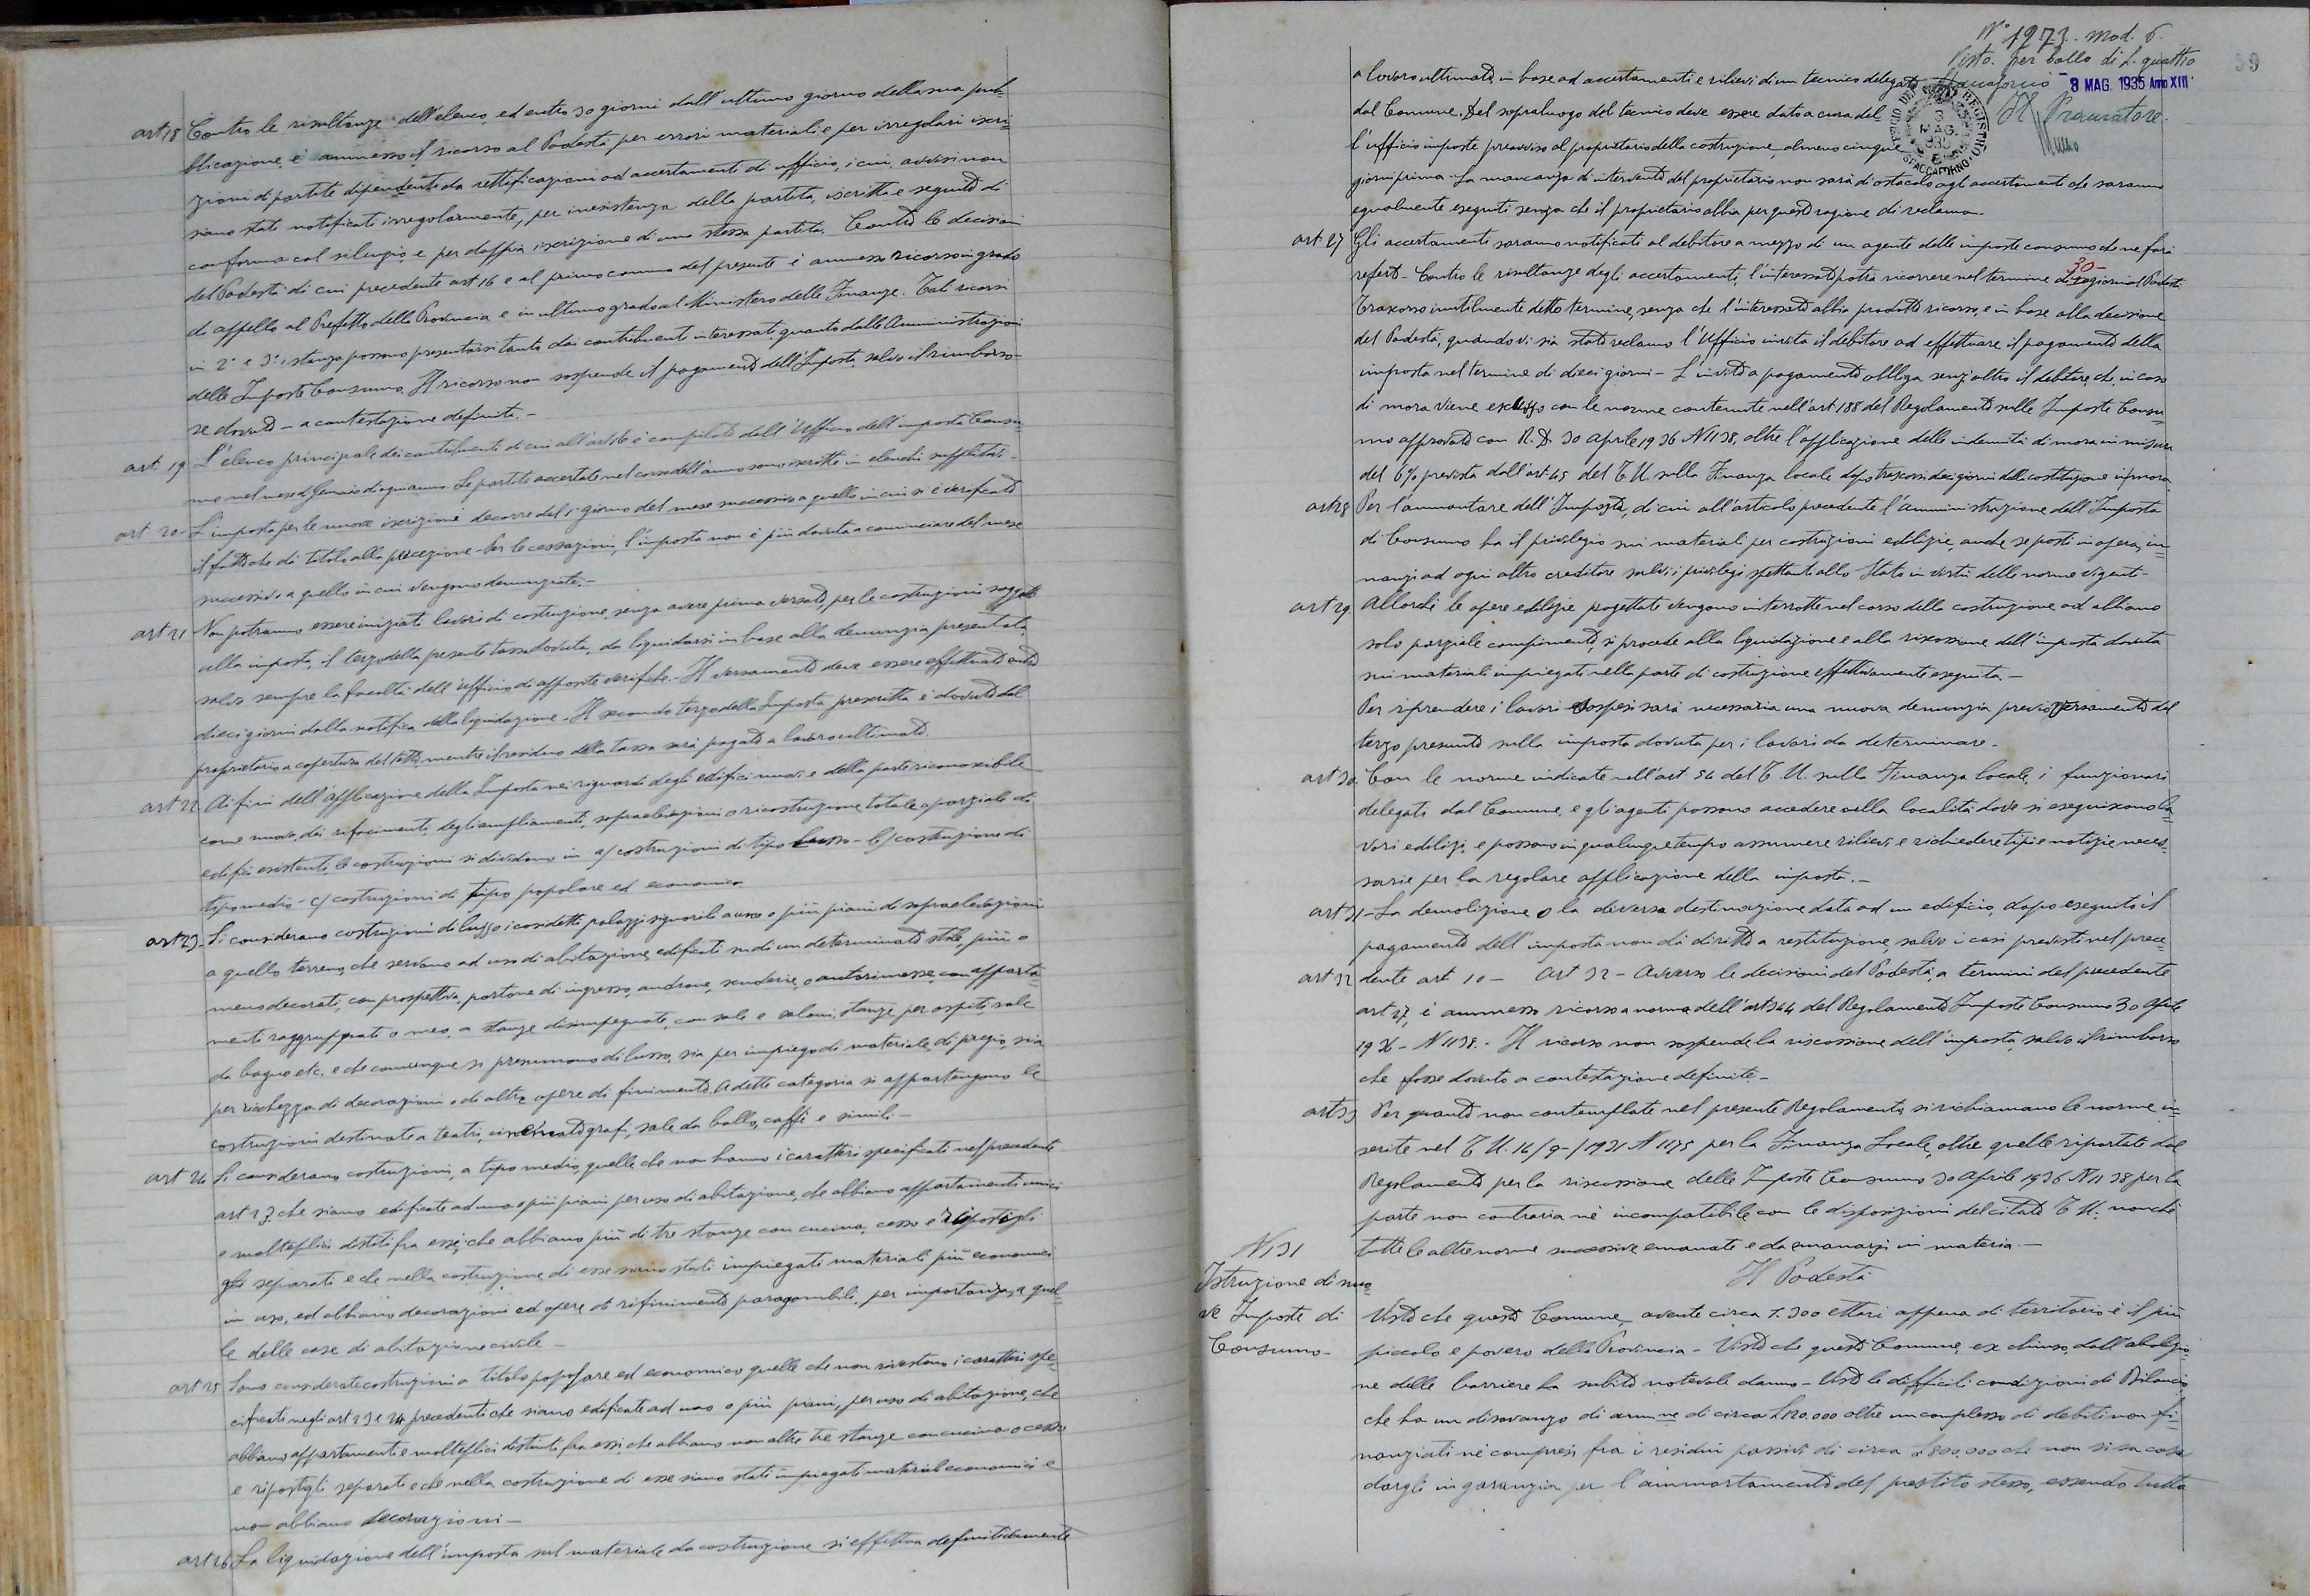 art 18 Contro le risultanze dell'elenco, ed entro 30 giorni dall'ultimo giorno della sua pub-
blicazione, è ammesso il ricorso al Podestà per errori materiali e per irregolari iscri-
zioni di partite dipendenti da rettificazioni od accertamenti di ufficio, i cui avvisi non
siano stati notificati irregolarmente, per inesistenza della partita, iscritta e seguito di
conferma col silenzio, e per doppia iscrizione di una stessa partita. Contro le decisioni
del Podestà di cui precedente art 16 e al primo comma del presente è ammesso ricorso in grado
di appello al Prefetto della Provincia e in ultimo grado al Ministero delle Finanze. Tali ricorsi
in 2ª e 3ª istanza possono presentarsi tanto dai contribuenti interessati quanto dalle Amministrazioni
delle Imposte Consumo. Il ricorso non sospende il pagamento dell'Imposta, salvo il rimborso-
se dovuto - a contestazione definita.-
art. 19 L'elenco principale dei contribuenti di cui all'art 16 è compilato dall'Ufficio dell'imposta Consu-
mo nel mese di Gennaio di ogni anno. Le partite accertate nel corso dell'anno sono iscritte in elenchi suppletivi.-
art 20- L'imposta per le nuove iscrizioni decorre dal 1° giorno del mese successivo a quello in cui si è verificato
il fatto che dà titolo alla percezione - Per le cessazioni, l'imposta non è più dovuta a cominciare dal mese
successivo a quello in cui vengono denunziate.-
art 21 Non potranno essere iniziati lavori di costruzione, senza avere prima versato, per le costruzioni soggette
alla imposta, il terzo della presente tassa dovuta, da liquidarsi in base alla denunzia presentata,
salvo sempre la facoltà dell'ufficio di apposite verifiche.- Il versamento deve essere effettuato entro
dieci giorni dalla notifica della liquidazione - Il secondo terzo della Imposta prescritta è dovuto dal
proprietario a copertura del tetto, mentre il residuo della tassa sarà pagato a lavoro ultimato.
art 22 Ai fini dell'applicazione della Imposta nei riguardi degli edifici nuovi e della parte riconoscibile
come nuova, dei rifacimenti, degli ampliamenti, sopraelevazioni o ricostruzione totale o parziale di
edifici esistenti, le costruzioni si dividono in a/ costruzioni di tipo lusso - b/ costruzione di
tipo medio - c/ costruzioni di tipo popolare ed economico
art 23- Si considerano costruzioni di lusso i cosidetti palazzi signorili a uno o più piani di sopraelevazioni
a quello terreno, che servono ad uso di abitazione, edificati su di un determinato stile, più o
meno decorati, con prospettiva, portone di ingresso, androne, scuderie, o autorimesse, con apparta-
menti raggruppati o meno, a stanze disimpegnate, con sale e saloni, stanze per ospiti, sale
da bagno etc. e che comunque si presumono di lusso, sia per impiego di materiale di pregio, sia
per ricchezza di decorazioni o di altre opere di finimento. A dette categoria si appartengono le
costruzioni destinate a teatri, cinematografi, sale da ballo, caffè e simili.-
art 24 Si considerano costruzioni, a tipo medio, quelle che non hanno i caratteri specificati nel precedente
art 23 che siano edificate ad uno o più piani per uso di abitazione, che abbiano appartamenti unici
e molteplici distiti fra essi; che abbiano più di tre stanze con cucina, cesso e ripostigli
gli separati e che nella costruzione di esse siano stati impiegati materiali più economici
in uso, ed abbiano decorazioni ed opere di rifinimento paragonabili, per importanza, a quel-
le delle case di abitazione civile -
art 25 Sono considerate costruzioni a titolo popolare ed economico quelle che non rivestono i caratteri spe-
cificati negli art 23 e 24 precedenti che siano edificate ad uno o più piani, per uso di abitazione, che
abbiano appartamenti e molteplici distinti fra essi, che abbiano non altre tre stanze con cucina o cesso
e ripostigli separati e che nella costruzione di esse siano stati impiegati materiali economici e
non abbiano decorazioni -
art 26 La liquidazione dell'imposta sul materiale da costruzione si effettua definitivamente
N° 1273. mod. 6.
Visto per bollo di L. quattro
39
8 MAG. 1935 Anno XIII
Il Procuratore
a lavoro ultimato, in base ad accertamenti e rilievi di un tecnico delegato
dal Comune. Del sopraluogo del tecnico deve essere dato a cura del-
l'ufficio imposte preavviso al proprietario della costruzione, almeno cinque
giorni prima. La mancanza di intervento del proprietario non sarà di ostacolo agli accertamenti che saranno
egualmente eseguiti senza che il proprietario abbia per questo ragione di reclamo.
art 27 Gli accertamenti saranno notificati al debitore a mezzo di un agente delle imposte consumo che ne farà
referto - Contro le risultanze degli accertamenti, l'interessato potrà ricorrere nel termine di 30- giorni al Podestà
Trascorso inutilmente detto termine, senza che l'interessato abbia prodotto ricorso, e in base alla decisione
del Podestà, quando vi sia stato reclamo l'Ufficio invita il debitore ad effettuare il pagamento della
imposta nel termine di dieci giorni - L'invito a pagamento obbliga senz'altro il debitore che, in caso
di mora viene escusso con le norme contenute nell'art 188 del Regolamento sulle Imposte Consu-
mo approvato con R.D. 30 aprile 1936 N 1138, oltre l'applicazione delle indennità di mora in misura
del 6% prevista dall'art 45 del T.U. sulla Finanza locale dopo trascorsi dieci giorni della costituzione in mora
art 28 Per l'ammontare dell'Imposta, di cui all'articolo precedente l'amministrazione dell'Imposta
di Consumo ha il privilegio sui materiali per costruzioni edilizie, anche se posti in opera, in-
nanzi ad ogni altro creditore salvi i privilegi spettanti allo Stato in virtù delle norme vigenti-
art 29 Allorchè le opere edilizie progettate vengono interrotte nel corso della costruzione od abbiano
solo parziale compimento, si procede alla liquidazione e alla riscossione dell'imposta dovuta
sui materiali impiegati nella parte di costruzione effettivamente eseguita.-
Per riprendere i lavori sospesi sarà necessaria una nuova denunzia previo versamento del
terzo presunto sulla imposta dovuta per i lavori da determinare.
art 30 Con le norme indicate nell'art. 54 del T.U. sulla Finanza locale, i funzionari
delegati dal Comune e gli agenti possono accedere nella località dove si eseguiscono la-
vori edilizi, e possono in qualunque tempo assumere rilievi e richiedere tipi e notizie neces-
sarie per la regolare applicazione della imposta.-
art 31- La demolizione o la diversa destinazione data ad un edificio, dopo eseguito il
pagamento dell'imposta non dà diritto a restituzione, salvo i casi previsti nel prece-
art 32 dente art 10 - Art 32 - Avverso le decisioni del Podestà, a termini del precedente
art 27, è ammesso ricorso a norma dell'art 344 del Regolamento Imposte Consumo 30 aprile
1936 - N 1138.- Il ricorso non sospende la riscossione dell'imposta, salvo il rimborso
che fosse dovuto a contestazione definita -
art 33 Per quanto non contemplate nel presente Regolamento, si richiamano le norme in-
serite nel T.U. 14/9-/1931 N 1175 per la Finanza Locale, oltre quelle riportate dal
Regolamento per la riscossione delle Imposte Consumo 30 aprile 1936 N 1138 per la
parte non contraria nè incompatibile con le disposizioni del citato T.U. nonchè
tutte le altre norme successive emanate e da emanarsi in materia.-
N 131
Istruzione di nuo-
ve Imposte di
Consumo-
Il Podestà
Visto che questo Comune, avente circa 1.300 ettari appena di territorio è il più
piccolo e povero della Provincia - Visto che questo Comune, ex chiuso, dall'abolizio-
ne delle barriere ha subito notevole danno - Visto le difficili condizioni di Bilancio
che ha un disavanzo di circa L 120.000 oltre un complesso di debiti non fi-
nanziati nè compresi fra i residui passivi di circa L 800.000 che non si sa cosa
dargli in garanzia per l'ammortamento del prestito stesso, essendo tutta